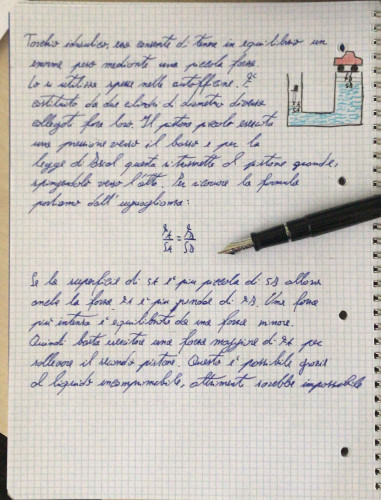 Torchio idraulico, esso consente di tenere in equilibrio un
enorme peso mediante una piccola forza.
Lo si utilizza spesso nelle autofficine. È
costituito da due cilindri di diametro diverso
collegati fra loro. Il pistone piccolo esercita
una pressione verso il basso e per la
legge di Pascal questa si trasmette al pistone grande,
spingendolo verso l'alto. Per ricavare la formula
partiamo dall'uguaglianza:
FA/SA = FB/SB
Se la superficie di SA è più piccola di SB allora
anche la forza FA è più grande di FB. Una forza
più intensa è equilibrata da una forza minore.
Quindi basta esercitare una forza maggiore di FA per
sollevare il secondo pistone. Questo è possibile grazie
al liquido incomprimibile, altrimenti sarebbe impossibile